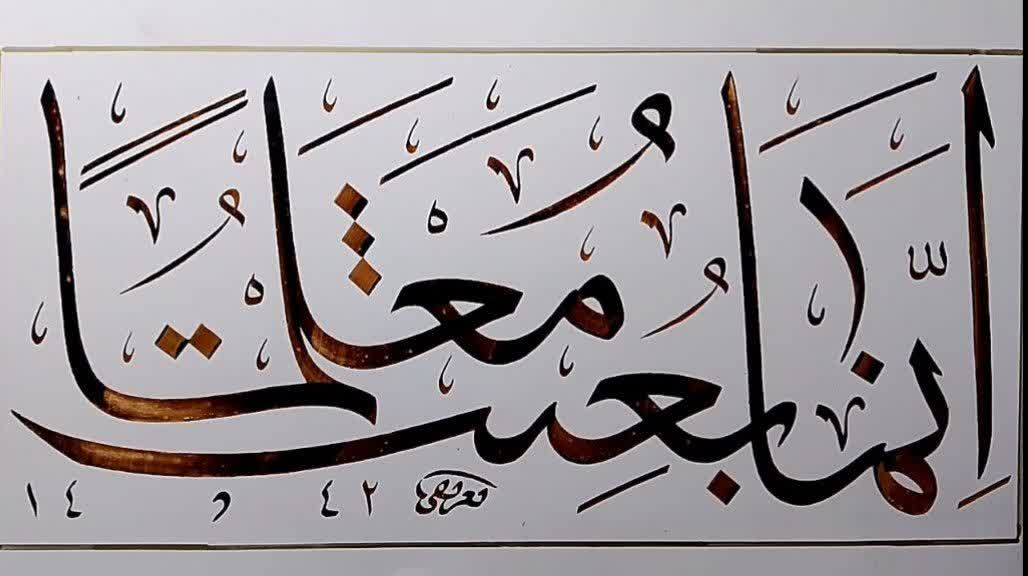 إِنَّمَا بُعِثْتُ مُعَلِّمًا
١٤٤٢